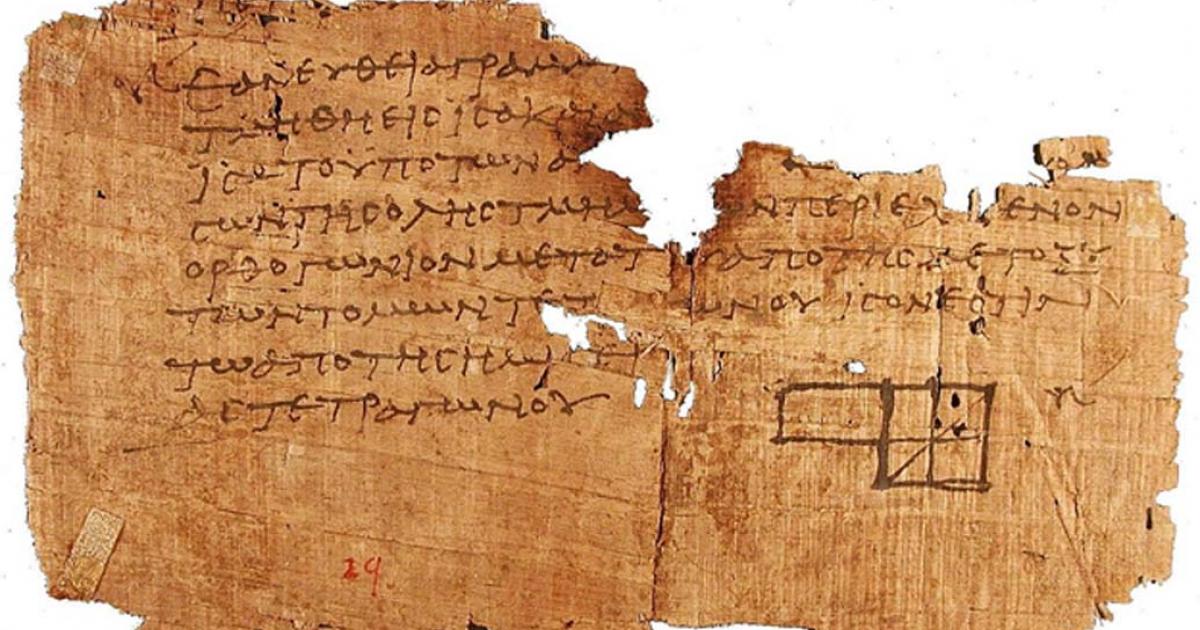 ΕΑΝ ΕΥΘΕΙΑ ΓΡΑΜΜ
ΤΜΗΘΗ ΕΙϹ ΙϹΑ ΚΑΙ Α
ΙϹΑ ΤΟ ΥΠΟ ΤΩΝ
ϹΩΝ ΤΗϹ ΟΛΗϹ ΤΜΗΜ ΩΝ ΠΕΡΙΕΧ ΜΕΝΟΝ
ΟΡΘΟΓΩΝΙΟΝ ΜΕΤΑ ΤΟΥ ΑΠΟ ΤΗϹ ΜΕΤΟΞΥ
ΤΩΝ ΤΟΜΩΝ ΤΕΤ ΩΝΟΥ ΙϹΟΝ ΕϹΤΙΝ
ΤΩ ΑΠΟ ΤΗϹ ΗΜΙ
ΑϹ ΤΕΤΡΑΓΩΝΟΥ
29